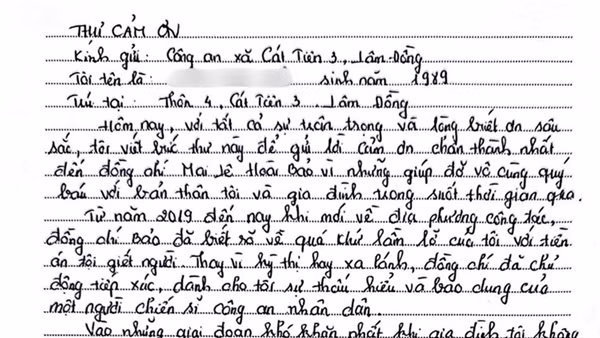 THƯ CẢM ƠN
Kính gửi: Công an xã Cát Tiên 3, Lâm Đồng
Tôi tên là: sinh năm 1989
Trú tại: Thôn 4, Cát Tiên 3. Lâm Đồng
Hôm nay, với tất cả sự trân trọng và lòng biết ơn sâu
sắc, tôi viết bức thư này để gửi lời cảm ơn chân thành nhất
đến đồng chí Mai Lê Hoài Bảo vì những giúp đỡ vô cùng quý
báu với bản thân tôi và gia đình trong suốt thời gian qua.
Từ năm 2019 đến nay khi mới về địa phương công tác,
đồng chí Bảo đã biết rõ về quá khứ lầm lỡ của tôi với tiền
án tội giết người. Thay vì kỳ thị hay xa lánh, đồng chí đã chủ
động tiếp xúc, dành cho tôi sự thấu hiểu và bao dung của
một người chiến sĩ công an nhân dân.
Vào những giai đoạn khó khăn nhất khi gia đình tôi không